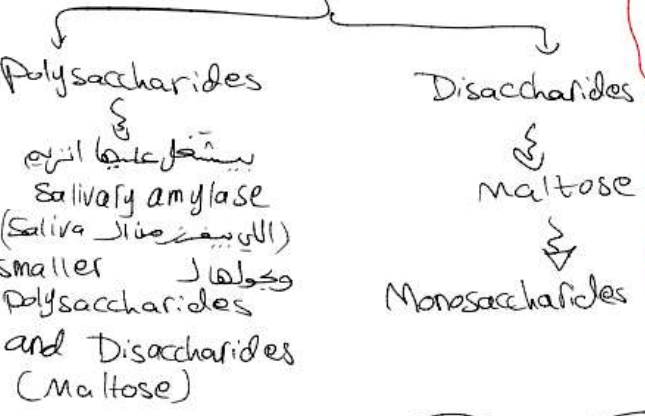 Polysaccharides
بيشتغل عليها انزيم
Salivary amylase
(اللي بيفرز من ال Saliva)
ويحولها ل smaller
polysaccharides
and Disaccharides
(Maltose)
Disaccharides
Maltose
Monosaccharides